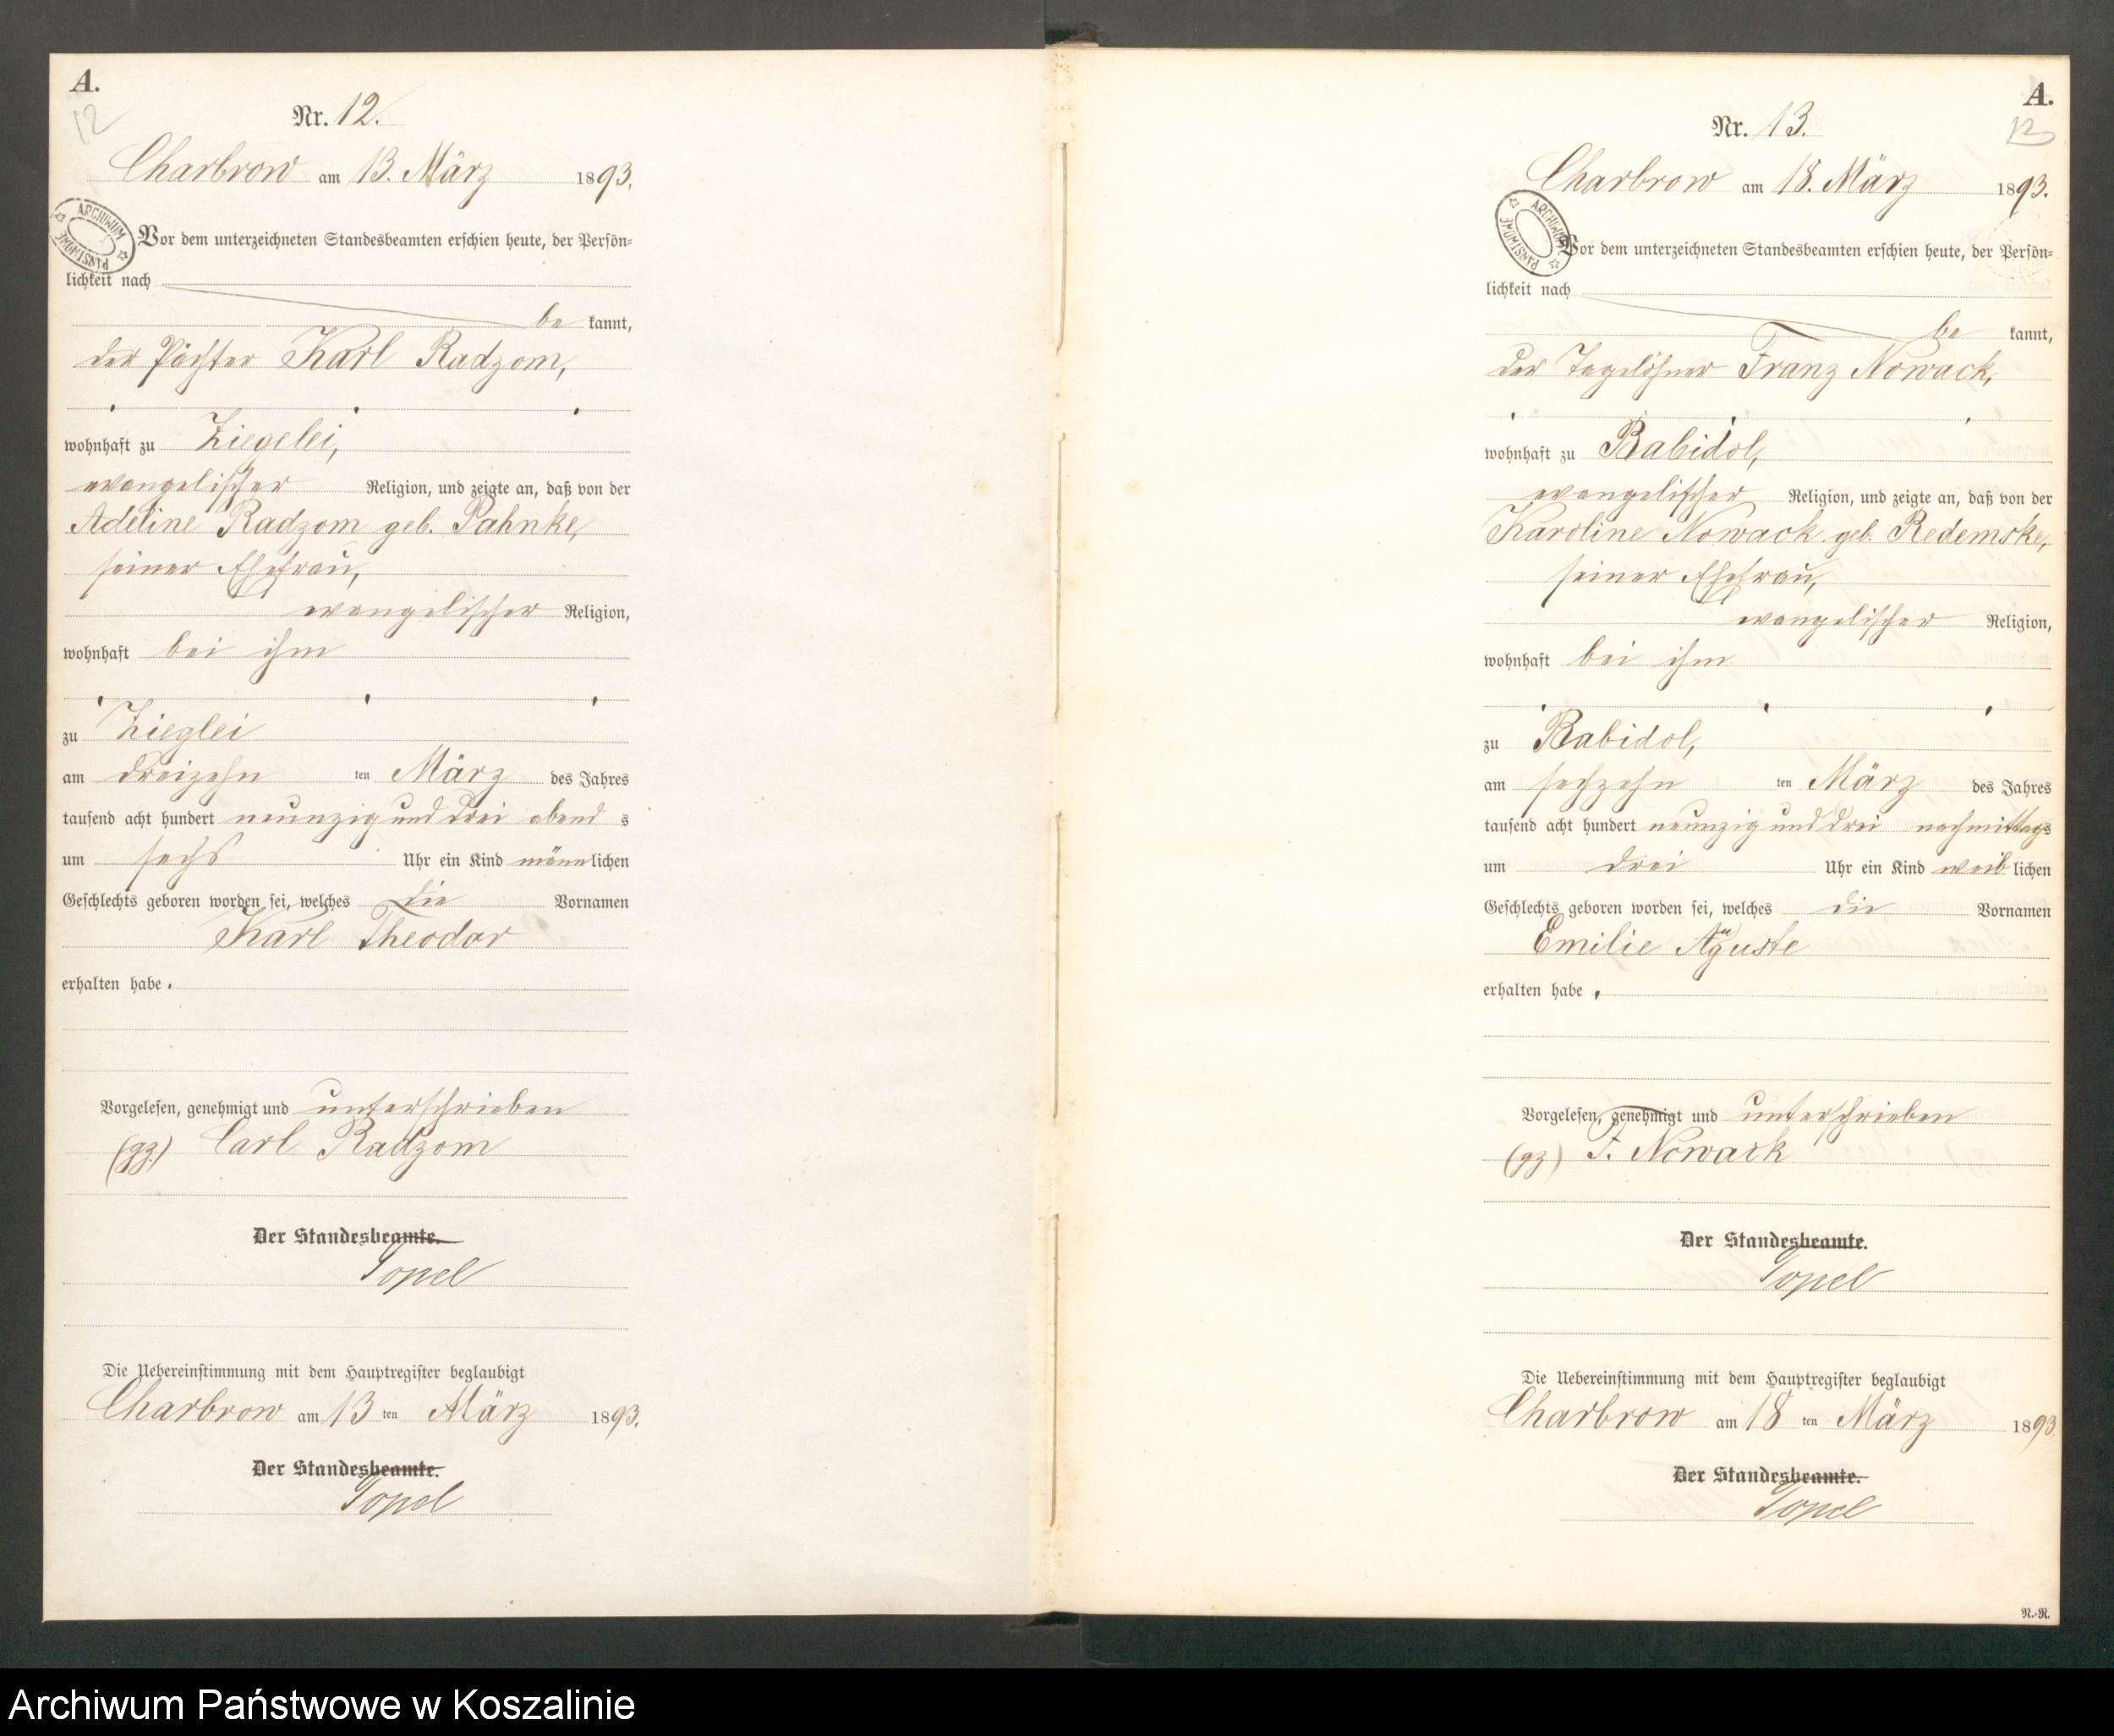 A.
12
Nr. 12.
Charbrow am 13. März 1893.
ARCHIWUM PAŃSTWOWE
Vor dem unterzeichneten Standesbeamten erschien heute, der Persön=
lichkeit nach
be kannt,
der Pächter Karl Radzom,
wohnhaft zu Ziegelei,
evangelischer Religion, und zeigte an, daß von der
Adeline Radzom geb. Pahnke,
seiner Ehefrau,
evangelischer Religion,
wohnhaft bei ihm
zu Zieglei
am dreizehn ten März des Jahres
tausend acht hundert neunzig und drei abend s
um sechs Uhr ein Kind männlichen
Geschlechts geboren worden sei, welches die Vornamen
Karl Theodor
erhalten habe.
Vorgelesen, genehmigt und unterschrieben
(gz.) Carl Radzom
Der Standesbeamte.
Topel
Die Uebereinstimmung mit dem Hauptregister beglaubigt
Charbrow am 13 ten März 1893.
Der Standesbeamte.
Topel
A.
13
Nr. 13.
Charbrow am 18. März 1893.
ARCHIWUM PAŃSTWOWE
Vor dem unterzeichneten Standesbeamten erschien heute, der Persön=
lichkeit nach
be kannt,
der Tagelöhner Franz Nowack,
wohnhaft zu Babidol,
evangelischer Religion, und zeigte an, daß von der
Karoline Nowack geb. Redemske,
seiner Ehefrau,
evangelischer Religion,
wohnhaft bei ihm
zu Babidol,
am sechzehn ten März des Jahres
tausend acht hundert neunzig und drei nachmittags
um drei Uhr ein Kind weib lichen
Geschlechts geboren worden sei, welches die Vornamen
Emilie Auguste
erhalten habe.
Vorgelesen, genehmigt und unterschrieben
(gz) F. Nowack
Der Standesbeamte.
Topel
Die Uebereinstimmung mit dem Hauptregister beglaubigt
Charbrow am 18 ten März 1893
Der Standesbeamte.
Topel
N.-R.
Archiwum Państwowe w Koszalinie